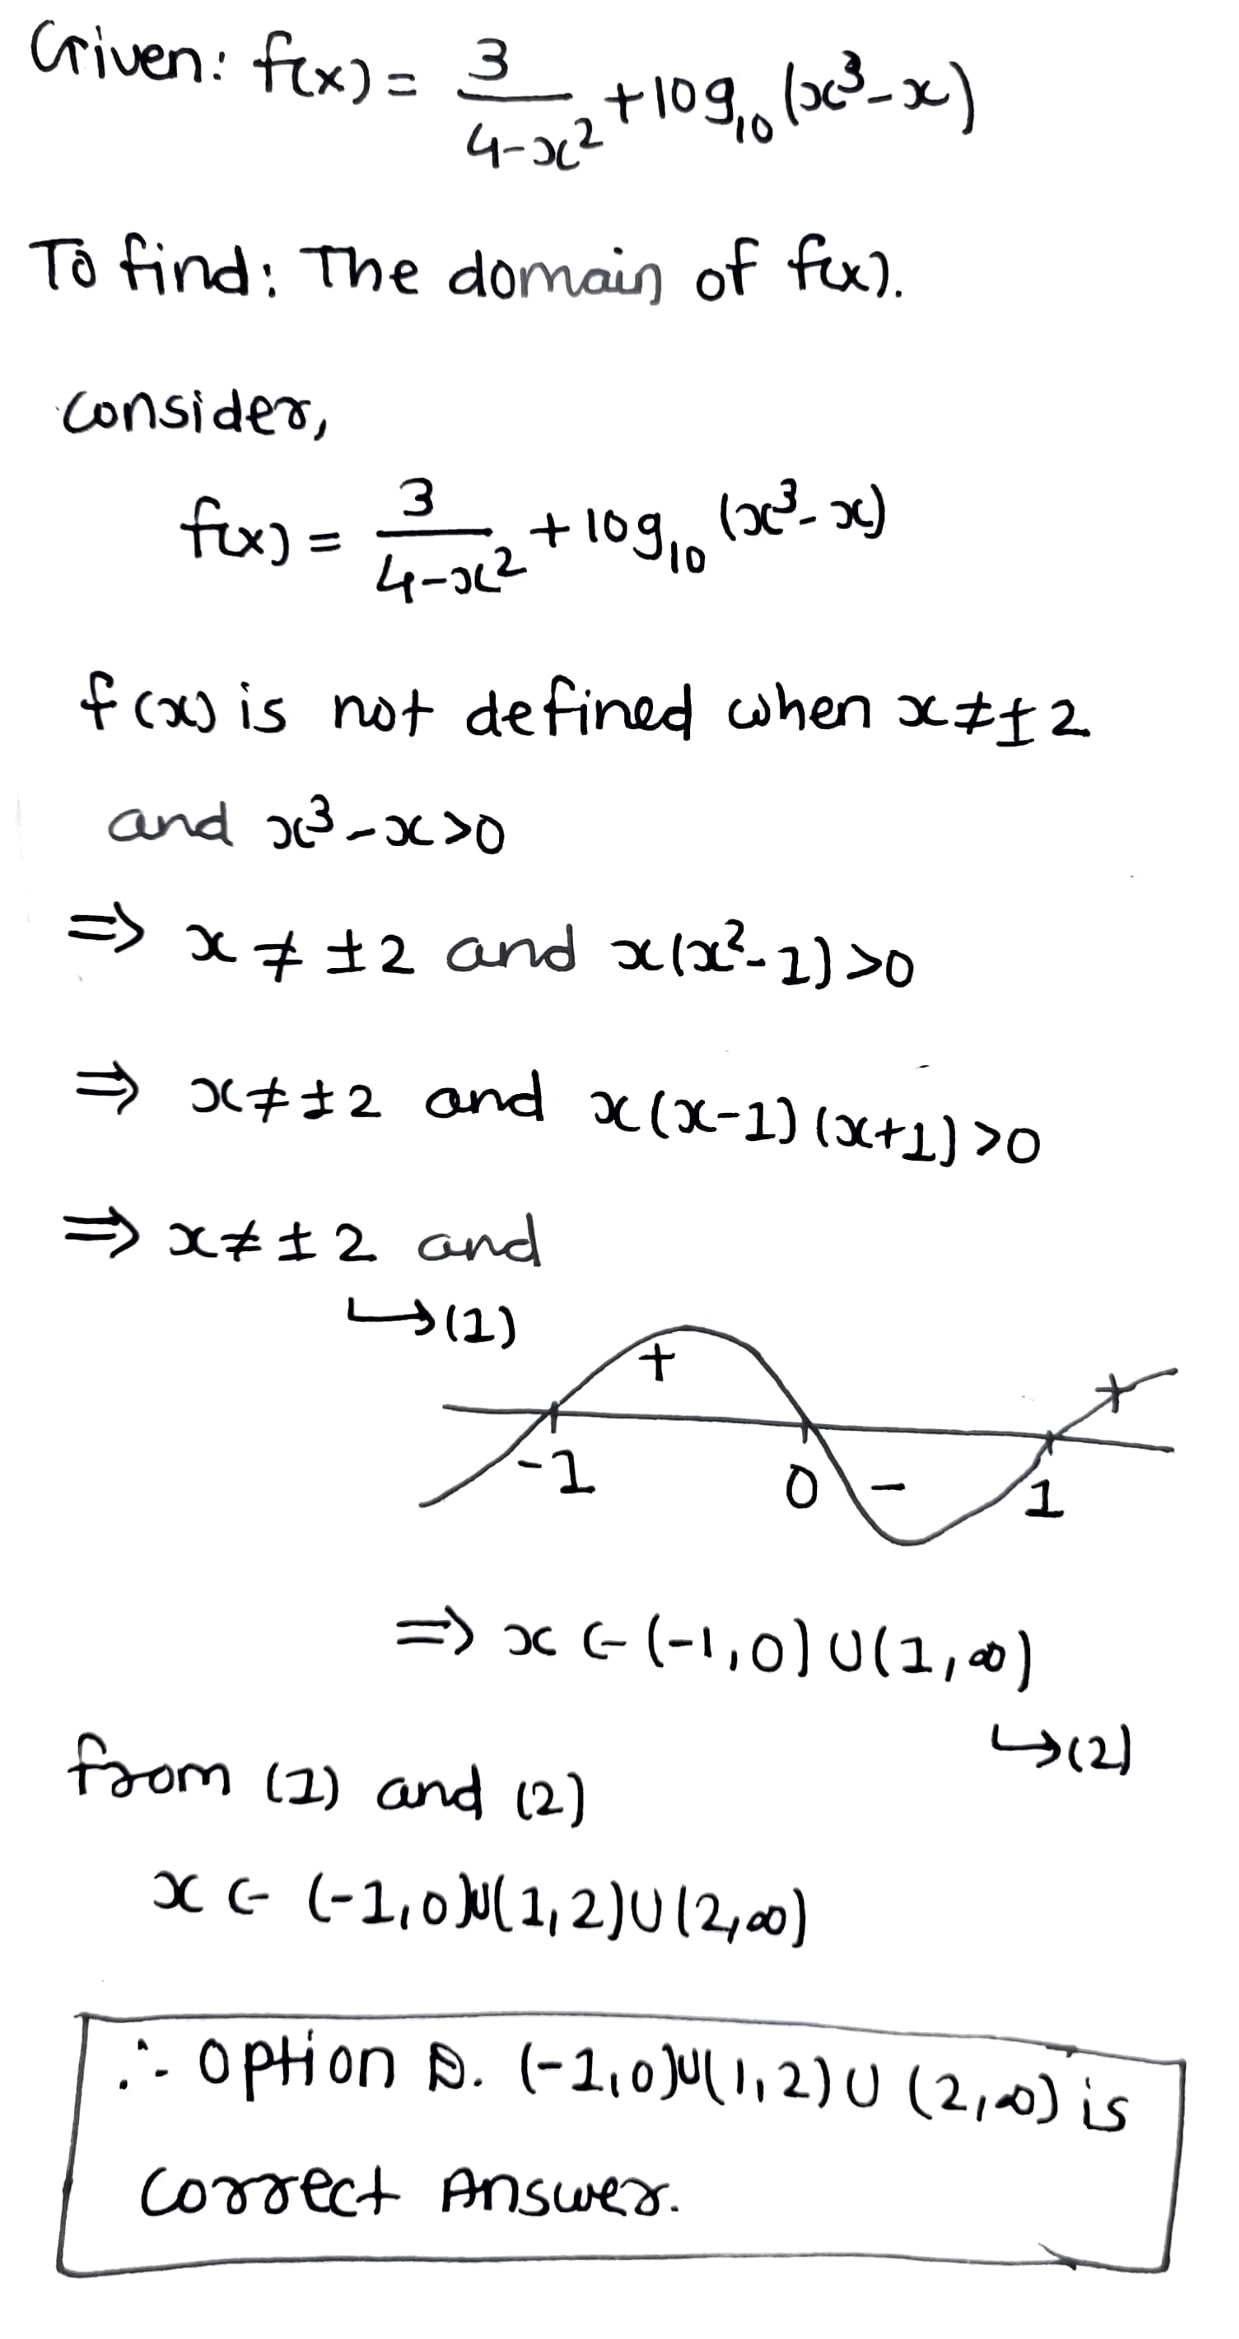 Given: f(x) = 3/(4-x²) + log₁₀ (x³-x)
To find: The domain of f(x).
consider,
f(x) = 3/(4-x²) + log₁₀ (x³-x)
f(x) is not defined when x ≠ ±2
and x³-x>0
=> x ≠ ±2 and x(x²-1)>0
=> x ≠ ±2 and x(x-1)(x+1)>0
=> x ≠ ±2 and
↳(1)
+ +
-1 0 - 1
=> x ∈ (-1,0) ∪ (1,∞)
↳(2)
from (1) and (2)
x ∈ (-1,0)∪(1,2)∪(2,∞)
∴ Option D. (-1,0)∪(1,2)∪(2,∞) is
correct Answer.